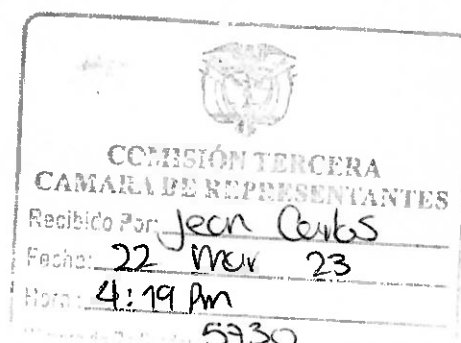 COMISIÓN TERCERA
CAMARA DE REPRESENTANTES
Recibido Por: Jean Carlos
Fecha: 22 Mar 23
Hora: 4:19 Pm
5730